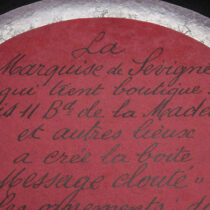 La
Marquise de Sevigne
qui tient boutique
11 Bd. de la Mada
et autres lieux
a créé la boite
Message clouté"
les ornements d